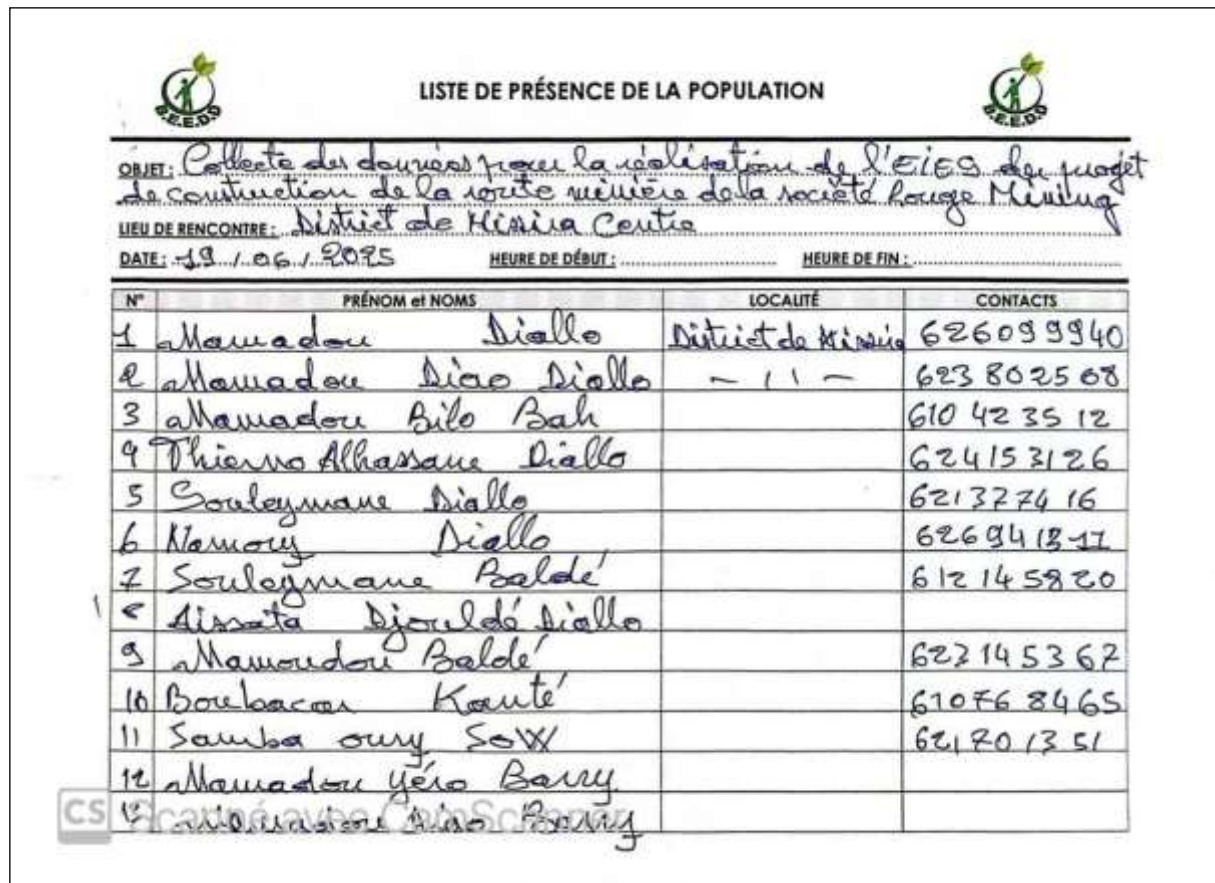 B.E.E.D.D
LISTE DE PRÉSENCE DE LA POPULATION
B.E.E.D.D
OBJET: Collecte des données pour la réalisation de l'EIES du projet
de construction de la route minière de la société Rouge Mining
LIEU DE RENCONTRE: District de Missira Centre
DATE: 19/06/2025 HEURE DE DÉBUT: HEURE DE FIN:
N° PRÉNOM et NOMS LOCALITÉ CONTACTS
1 Mamadou Diallo District de Missira 626099940
2 Mamadou Diao Diallo - 11 - 623 802508
3 Mamadou Bilo Bah 610 42 35 12
4 Thierno Alhassane Diallo 624153126
5 Souleymane Diallo 621377416
6 Namory Diallo
7 Souleymane Baldé 612145820
8 Aissata Djouldé Diallo
9 Mamoudou Baldé 623145367
10 Boubacar Kanté 610768465
11 Samba oury SOW 621701351
12 Mamadou Yéro Barry
13 Barry
CS Scanné avec CamScanner